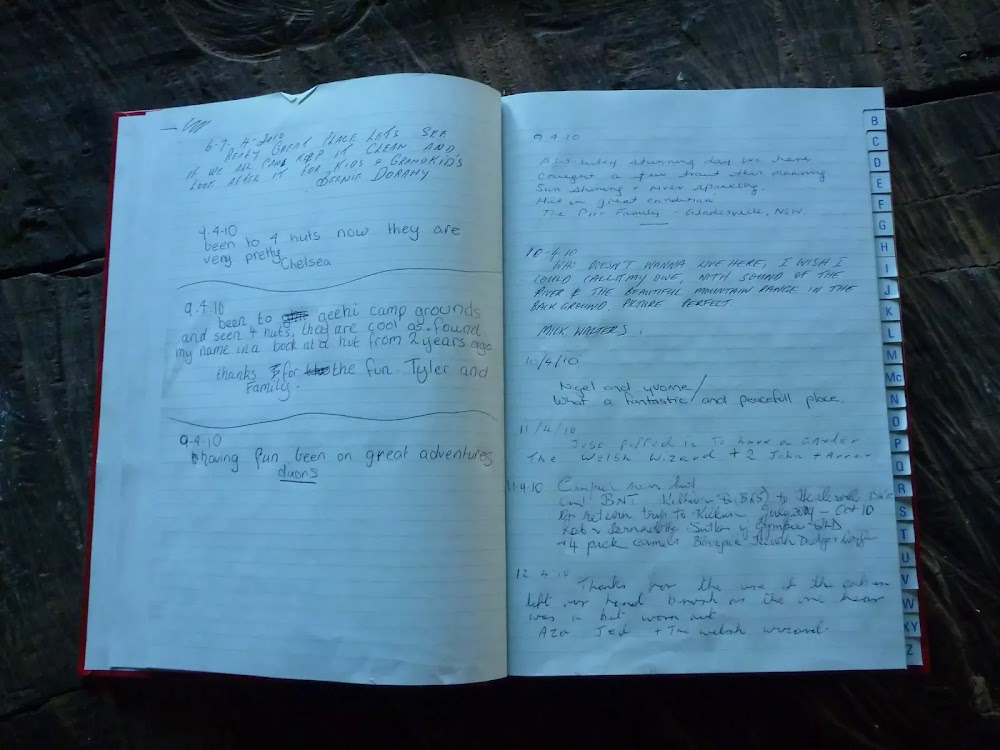 6-7.4-2010
REALY GREAT PLACE LETS SEE
IF WE ALL CAN KEEP IT CLEAN AND
LOOK AFTER IT FOR KIDS & GRANDKIDS
BERNIE DORAHY
9.4.10
been to 4 huts now they are
very pretty
Chelsea
9.4.10
been to geehi camp grounds
and seen 4 huts, they are cool as. found
my name in a book at a hut from 2 years ago
thanks for the fun. Tyler and
Family.
9-4-10
having fun been on great adventures
dixons
9.4.10
stunning day we have
caught a few trout this morning
Sun shining + river sparkling.
Hut in great condition
The Family - Gladesville, NSW
10-4-10
WHO DOESN'T WANNA LIVE HERE, I WISH I
COULD CALL IT MY OWE, WITH SOUND OF THE
RIVER & THE BEAUTIFUL MOUNTAIN RANGE IN THE
BACK GROUND. PICTURE PERFECT.
MICK WALTERS.
10/4/10
Nigel and yvonne/
What a fantastic/and peacefull place.
11/4/10
Just pulled in To have a
The Welsh Wizard + 2 John +
11.4.10 Camped near hut
BNT to
return trip to 2009 - Oct 10
Rob & Bernadette of Gympie QLD
+ 4 pack camels
12.4.10
Thanks for the use of the
left our hand brush as the one hear
was a bit worn out
Aza Jed + The welsh wizard.
B
C
D
E
F
G
H
I
J
K
L
M
Mc
N
O
P
Q
R
S
T
U
V
W
XY
Z